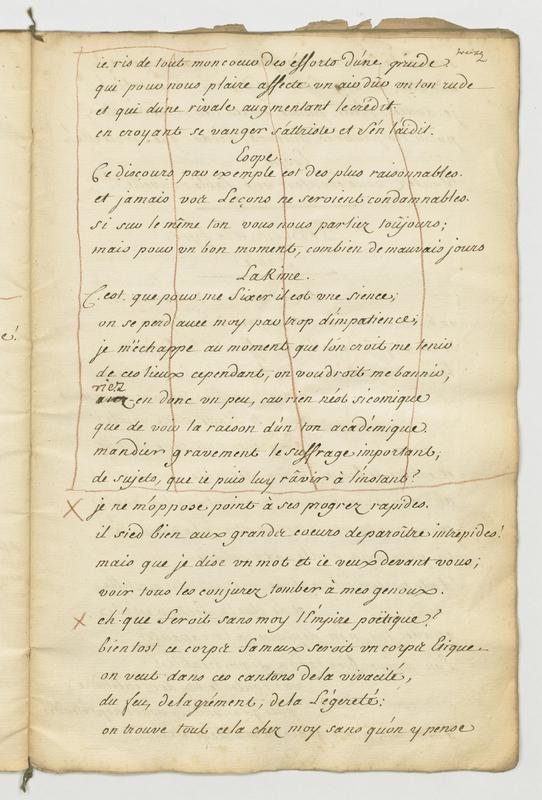 ie ris de tout mon coeur des éfforts d'une prude?
qui pour nous plaire affecte un air dur un ton rude
et qui dune rivale augmentant le crédit.
en croyant se vanger s'attriste et s'en laidit.
Esope.
Ce discours par exemple est des plus raisonnables.
et jamais vos Leçons ne seroient condamnables.
si sur le même ton vous nous parliez toûjours;
mais pour un bon moment, combien de mauvais jours
La Rime.
C'est que pour me fixer il est une sience;
on se perd avec moy par trop d'impatience;
je m'échappe au moment que l'on croit me tenir
de ces lieux cependant, on voudroit me bannir,
riez
en donc un peu, car rien n'est si comique
que de voir la raison d'un ton académique.
mandier gravement le suffrage important,
de sujets, que ie puis luy râvir à l'instant?
je ne m'oppose point à ses progrez rapides.
il sied bien aux grands coeurs de paroître intrépides!
mais que je dise un mot et ie veux devant vous;
voir tous les conjurez tomber à mes genoux.
eh! que seroit sans moy l'Empire poëtique?
bientost ce corps fameux seroit un corps Etique
on veut dans ces cantons de la vivacité,
du feu, de lagrément, de la Légereté;
on trouve tout cela chez moy sans qu'on y pense